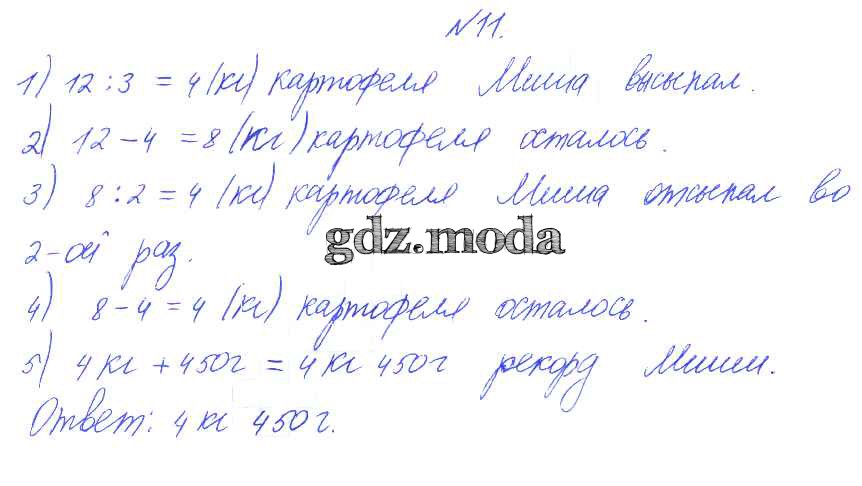 №11.
1) 12:3 = 4 (кг) картофеля Миша высыпал.
2) 12-4 = 8 (кг) картофеля осталось.
3) 8:2 = 4 (кг) картофеля Миша отсыпал во
2-ой раз.
gdz.moda
4) 8-4 = 4 (кг) картофеля осталось.
5) 4 кг + 450г = 4 кг 450г рекорд Миши.
Ответ: 4 кг 450г.